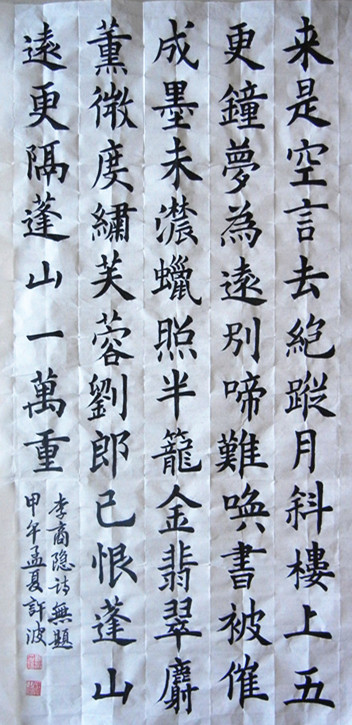 来是空言去絕蹤月斜樓上五
更鐘夢為遠別啼難喚書被催
成墨未濃蠟照半籠金翡翠麝
薰微度繡芙蓉劉郎已恨蓬山
遠更隔蓬山一萬重
李商隐诗無題
甲午孟夏許波